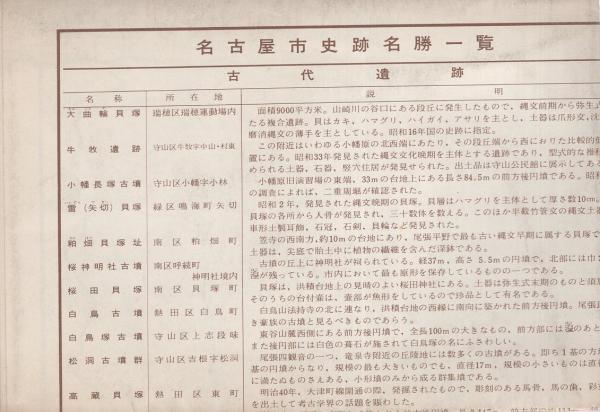 名古屋市史跡名勝一覧
古代遺跡
名称 所在地 説明
大曲輪貝塚 瑞穂区瑞穂運動場内
面積9000平方米。山崎川の谷口にある段丘に発生したもので、縄文前期から弥生式
たる複合遺跡。貝はカキ、ハマグリ、ハイガイ、アサリを主とし、土器は爪形文、沈
磨消縄文の薄手を主としている。昭和16年国の史跡に指定。
牛牧遺跡 守山区牛牧字中山・村東
この附近はいわゆる小幡原の北西端にあたり、その段丘端から西におりた比較的低
置にある。昭和33年発見された縄文文化晩期を主体とする遺跡であり、型式的な推移
められる土器、石器、竪穴住居が発見せられた。出土品は守山公民館に展示してある
小幡長塚古墳 守山区小幡字小林
小幡原旧演習場の東端、33mの台地上にある長さ84.5mの前方後円墳である。昭和
の調査によれば、二重周堀が確認された。
雷(矢切)貝塚 緑区鳴海町矢切
昭和2年、発見された縄文晩期の貝塚。貝層はハマグリを主体として厚さ数10m。
貝塚の各所から人骨が発見され、三十数体を数える。このほか半截竹管文の縄文土器
車形土製耳飾、石冠、石剣、貝輪など発見された。
粕畑貝塚址 南区粕畑町
笠寺の西南方、約10mの台地にあり、尾張平野で最も古い縄文早期に属する貝塚で
土器は、尖底で胎土中に植物の繊維を含んだ深鉢である。
桜神明社古墳 南区呼続町神明社境内
古墳の丘上に神明社が祠られている。経37m、高さ5.5mの円墳で、北部には巾
が残っている。市内において最も原形を保存しているものの一つである。
桜田貝塚 南区貝塚町
貝塚は、洪積台地上の見晴のよい桜田神社にある。土器は弥生式末期のものと須恵
そのうちの台付壷は、壷部が魚形をしているので珍品として有名である。
白鳥古墳 熱田区白鳥町
白鳥山法持寺の北に連なり、洪積台地の西縁に南向に築かれた前方後円墳。尾張氏
き豪族の古墳と見るべきものであろう。
白鳥塚古墳 守山区上志段味
東谷山麓西側にある前方後円墳で、全長100mの大きなもの、前方部には
また後円部には白色の葺石が施されて白鳥塚の名にふさわしい。
松洞古墳群 守山区吉根字松洞
尾張四観音の一つ、竜泉寺附近の丘陵地には数多くの古墳がある。即ち1基の方墳
基の円墳からなり、規模の最も大きいものでも、直径17m、規模の小さいものは直径
に満たぬものさえある、小形墳のみから成る群集墳である。
高蔵貝塚 熱田区東町
明治40年、大津町線開通の際、発掘されたもので、彫刻のある馬骨、馬の歯、彩
を出土して考古学界の話題を賑わした。